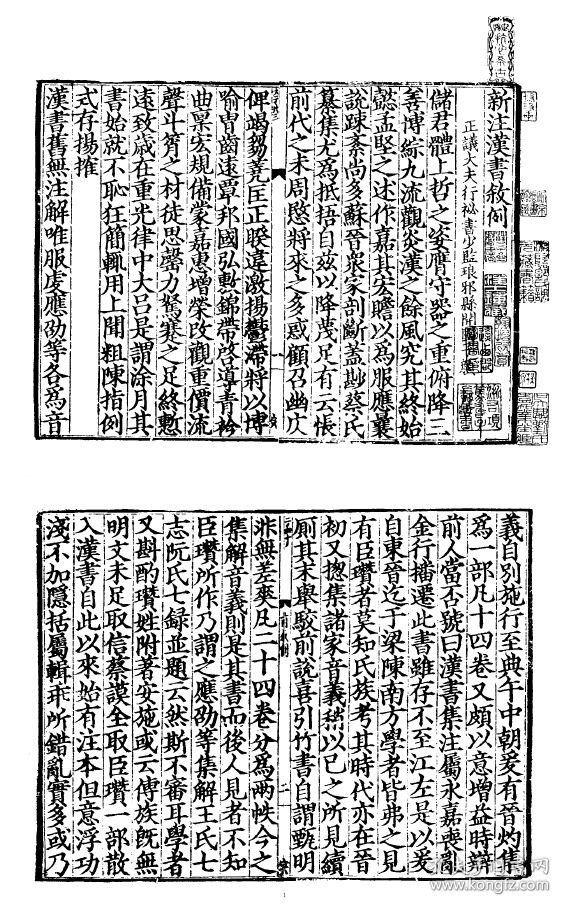 新注漢書敘例
正議大夫行祕書少監琅邪縣開
儲君體上哲之姿膺守器之重俯降三
善博綜九流觀炎漢之餘風究其終始
懿孟堅之述作嘉其宏贍以為服應曩
說疎紊尚多蘇晉衆家剖斷蓋尠蔡氏
纂集尤為抵捂自茲以降蔑足有云悵
前代之未周愍將來之多惑顧召幽仄
俾竭芻蕘匡正睽違激揚鬱滯將以博
喻胄齒遠覃邦國弘敷錦帶啓導青衿
曲稟宏規備蒙嘉惠增榮改觀重價流
聲斗筲之材徒思罄力駑蹇之足終慙
遠致歲在重光律中大呂是謂涂月其
書始就不恥狂簡輒用上聞粗陳指例
式存揚搉
漢書舊無注解唯服虔應劭等各為音
義自別施行至典午中朝爰有晉灼集
為一部凡十四卷又頗以意增益時辯
前人當否號曰漢書集注屬永嘉喪亂
金行播遷此書雖存不至江左是以爰
自東晉迄于梁陳南方學者皆弗之見
有臣瓚者莫知氏族考其時代亦在晉
初又揔集諸家音義稍以己之所見續
厠其末舉駮前說喜引竹書自謂甄明
非無差爽凡二十四卷分為兩帙今之
集解音義則是其書而後人見者不知
臣瓚所作乃謂之應劭等集解王氏七
志阮氏七錄並題云然斯不審耳學者
又斟酌瓚姓附著安施或云傅族旣無
明文未足取信蔡謨全取臣瓚一部散
入漢書自此以來始有注本但意浮功
淺不加隱括屬輯乖舛錯亂實多或乃
www.kongfz.com